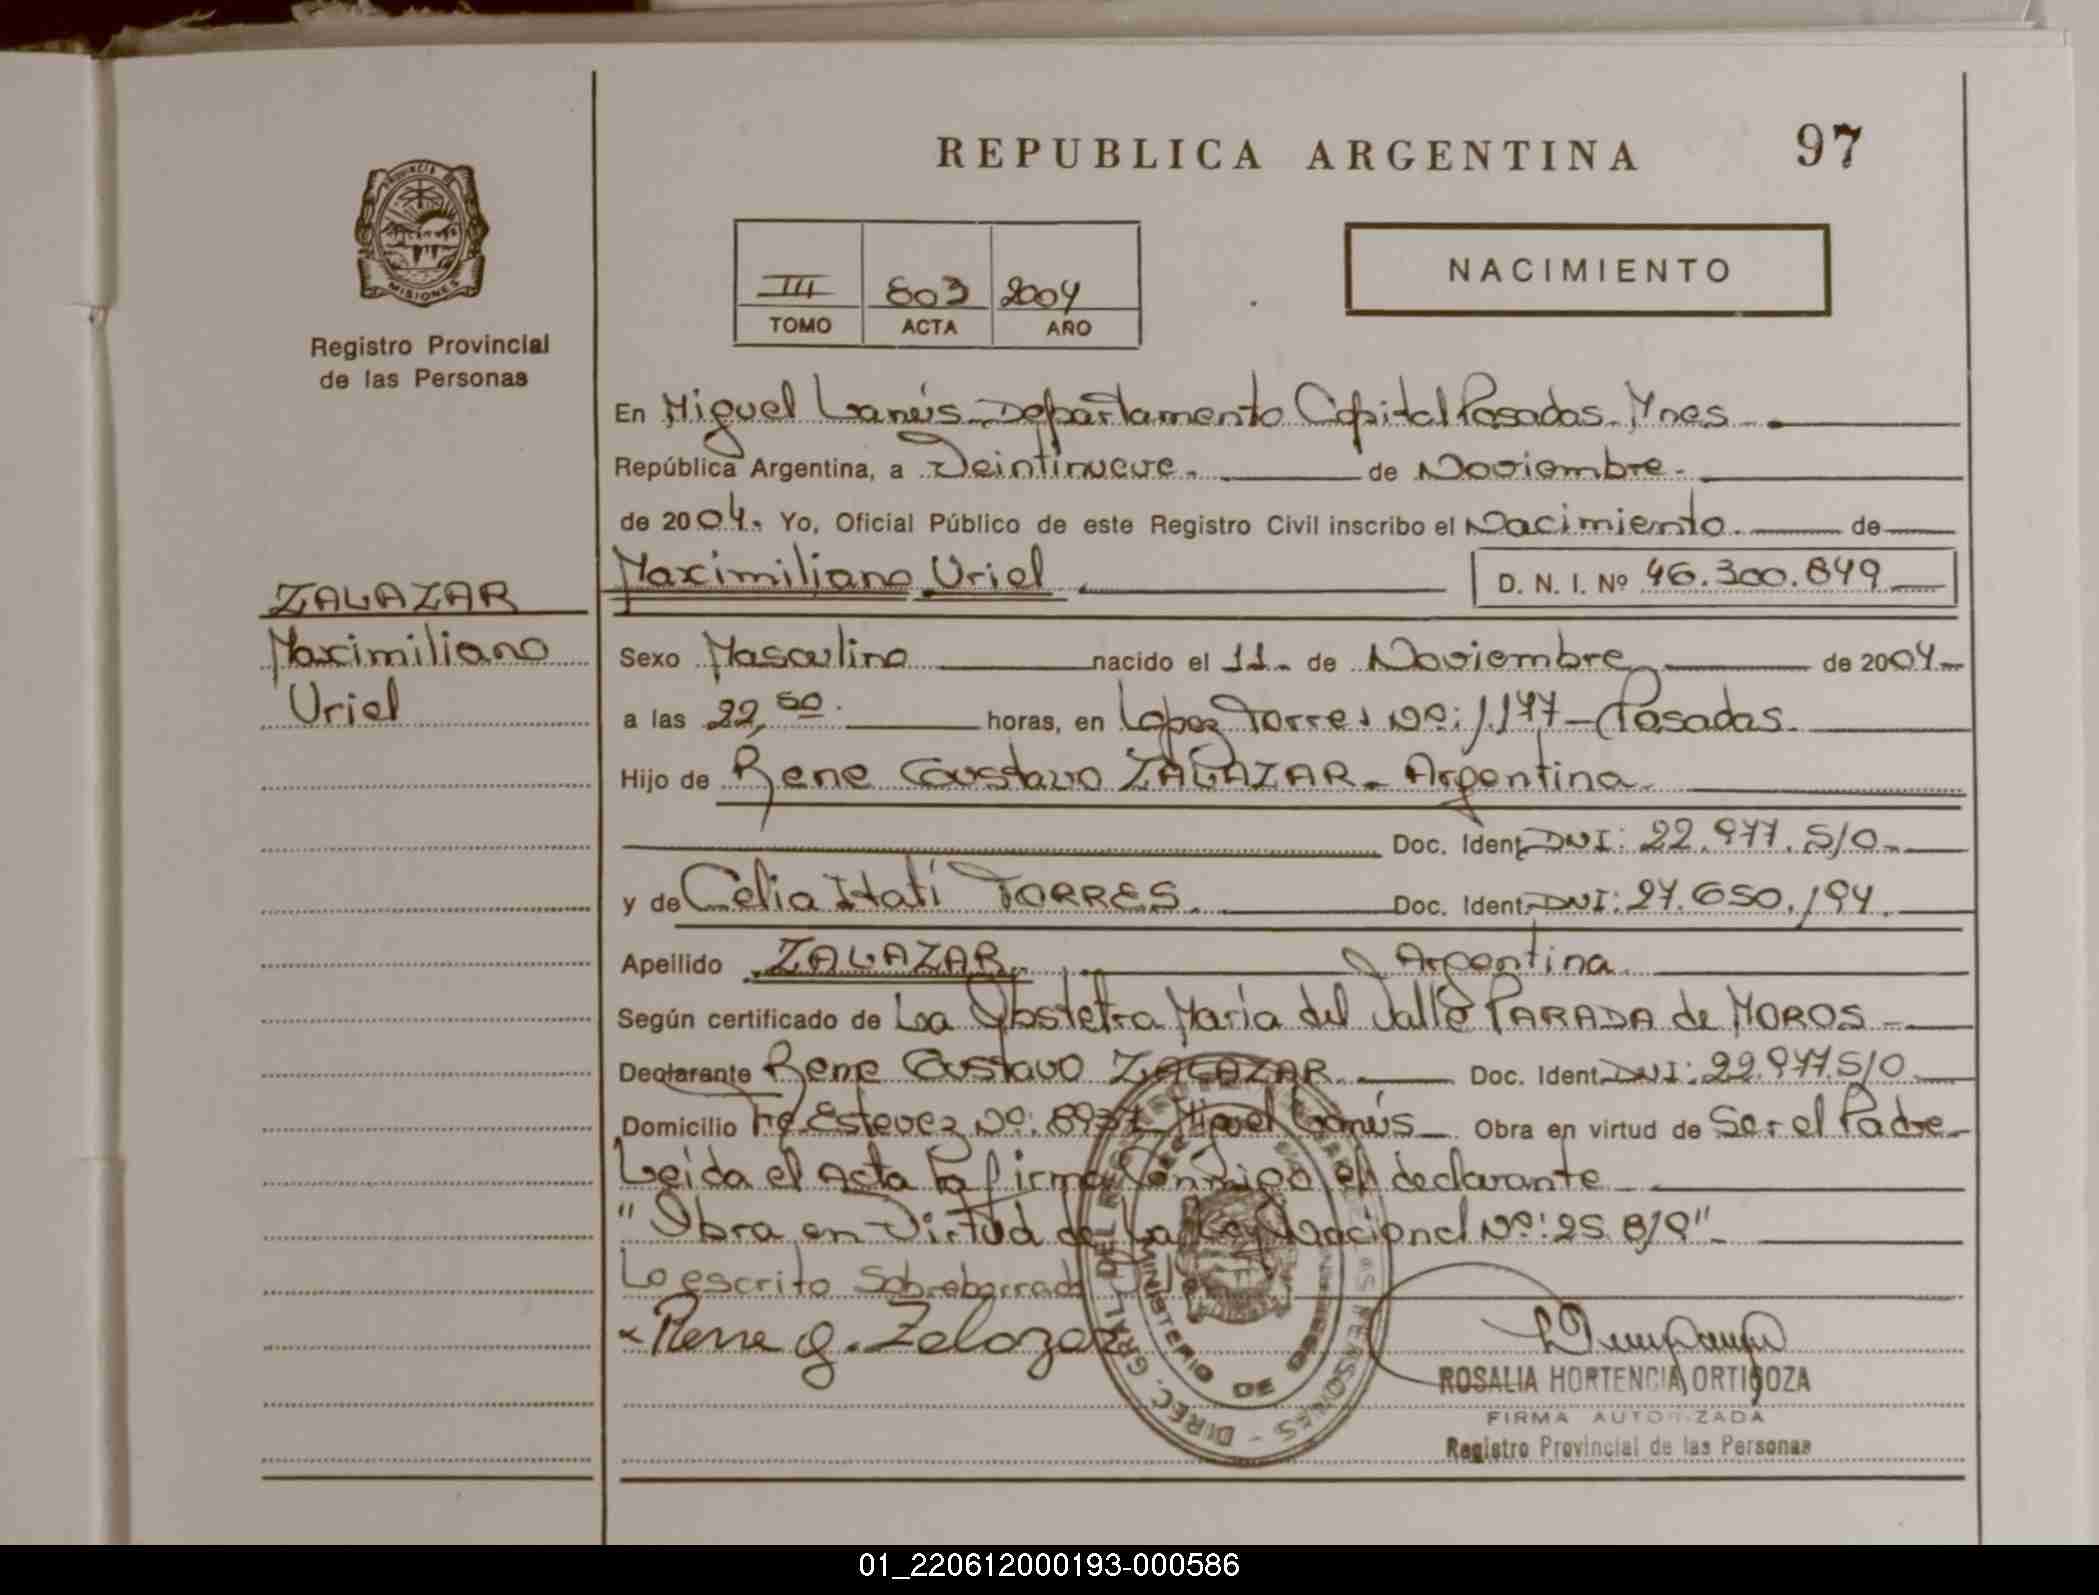 REPUBLICA ARGENTINA
97
PROVINCIA DE
MISIONES
Registro Provincial
de las Personas
III 603 2004
TOMO ACTA AÑO
NACIMIENTO
En Miguel Lanús Departamento Capital Posadas Mnes
República Argentina, a Veintinueve de Noviembre
de 2004. Yo, Oficial Público de este Registro Civil inscribo el Nacimiento de
Maximiliano Uriel D. N. I. Nº 46.300.849
ZALAZAR
Maximiliano
Uriel
Sexo Masculino nacido el 11 de Noviembre de 2004
a las 22,50 horas, en Lopez Torres Nº: 1177 - Posadas
Hijo de Rene Gustavo ZALAZAR - Argentina
Doc. Ident. DNI: 22.977.510
y de Celia Itatí TORRES Doc. Ident. DNI: 27.650.194
Apellido ZALAZAR Argentina
Según certificado de La Obstetra María del Valle PARADA de MOROS
Declarante Rene Gustavo ZALAZAR Doc. Ident. DNI: 22.977.510
Domicilio Fco. Estevez Nº: 8937 Miguel Lanús Obra en virtud de Ser el Padre
Leida el Acta la firma conmigo el declarante
"Obra en Virtud de La Ley Nacional Nº: 25.819"
Lo escrito Sobreborrado
Rene G. Zalazar
DIREC. GRAL. DEL
MINISTERIO DE
ROSALIA HORTENCIA ORTIGOZA
FIRMA AUTORIZADA
Registro Provincial de las Personas
01_220612000193-000586